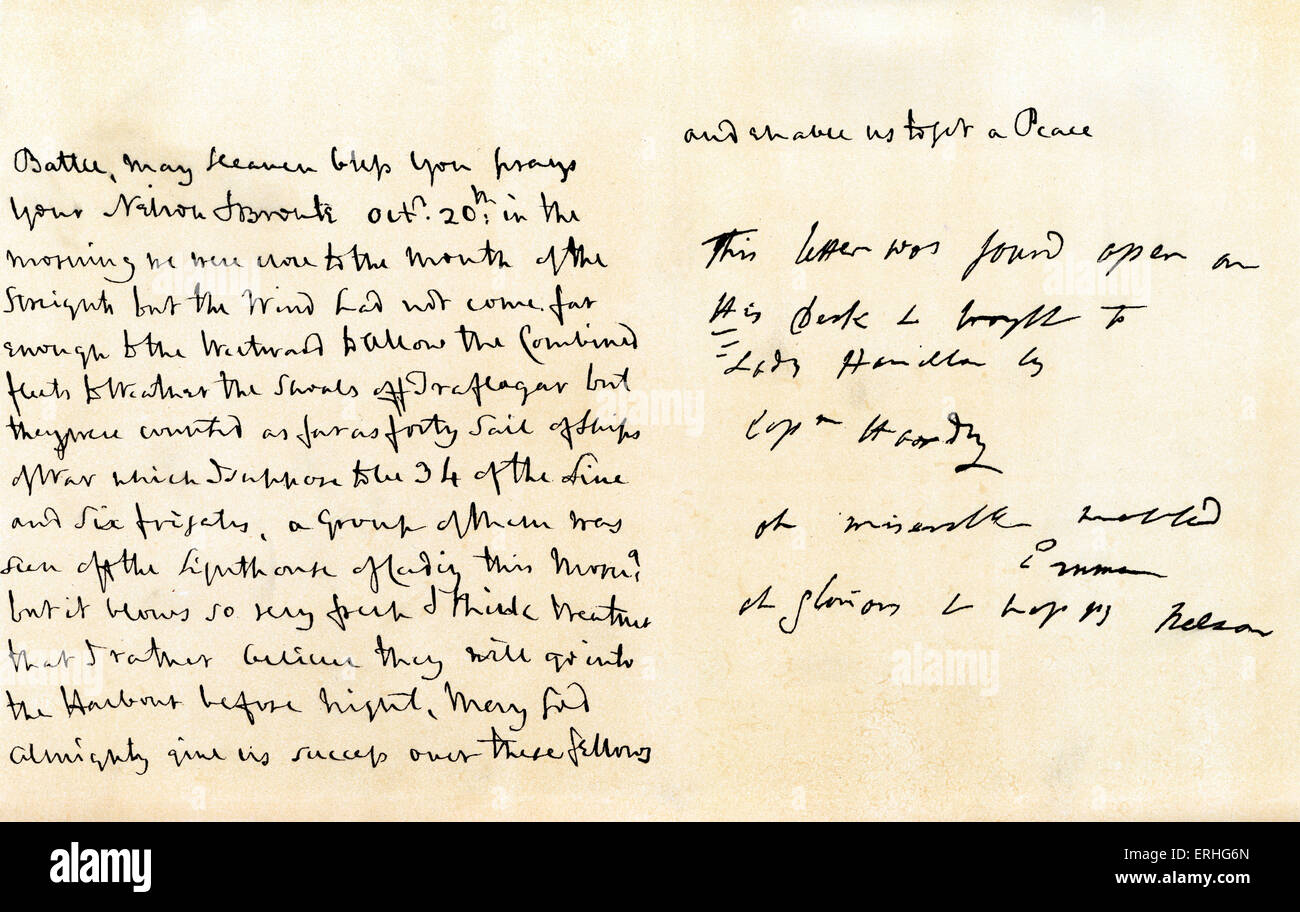 Battle, may Heaven bless you prays
your Nelson & Bronte Octr. 20th: in the
morning we were close to the mouth of the
Streights but the Wind had not come far
enough to the Westward to allow the Combined
fleets to Weather the Shoals off Traflagar but
they were counted as far as forty Sail of Ships
of War which I suppose to be 34 of the Line
and Six frigates, a Group of them was
seen off the Lighthouse of Cadiz this Morng
but it blows so very fresh I think Weather
that I rather believe they will go into
the Harbour before night, May God
Almighty give us success over these fellows
and enable us to get a Peace
This letter was found open on
His Desk & brought to
Lady Hamilton by
Capn Hardy
oh miserable wretched
Emma
oh glorious & happy Nelson
alamy
alamy
alamy
alamy
alamy
a
a
a
a
alamy stock photo
ERHG6N
www.alamy.com